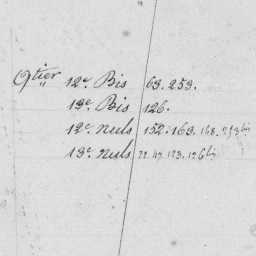 Qtier 12e Bis 63. 253.
13e Bis 126.
12e nuls 152. 163. 168. 253 bis
13e nuls 22. 47. 123. 126 bis